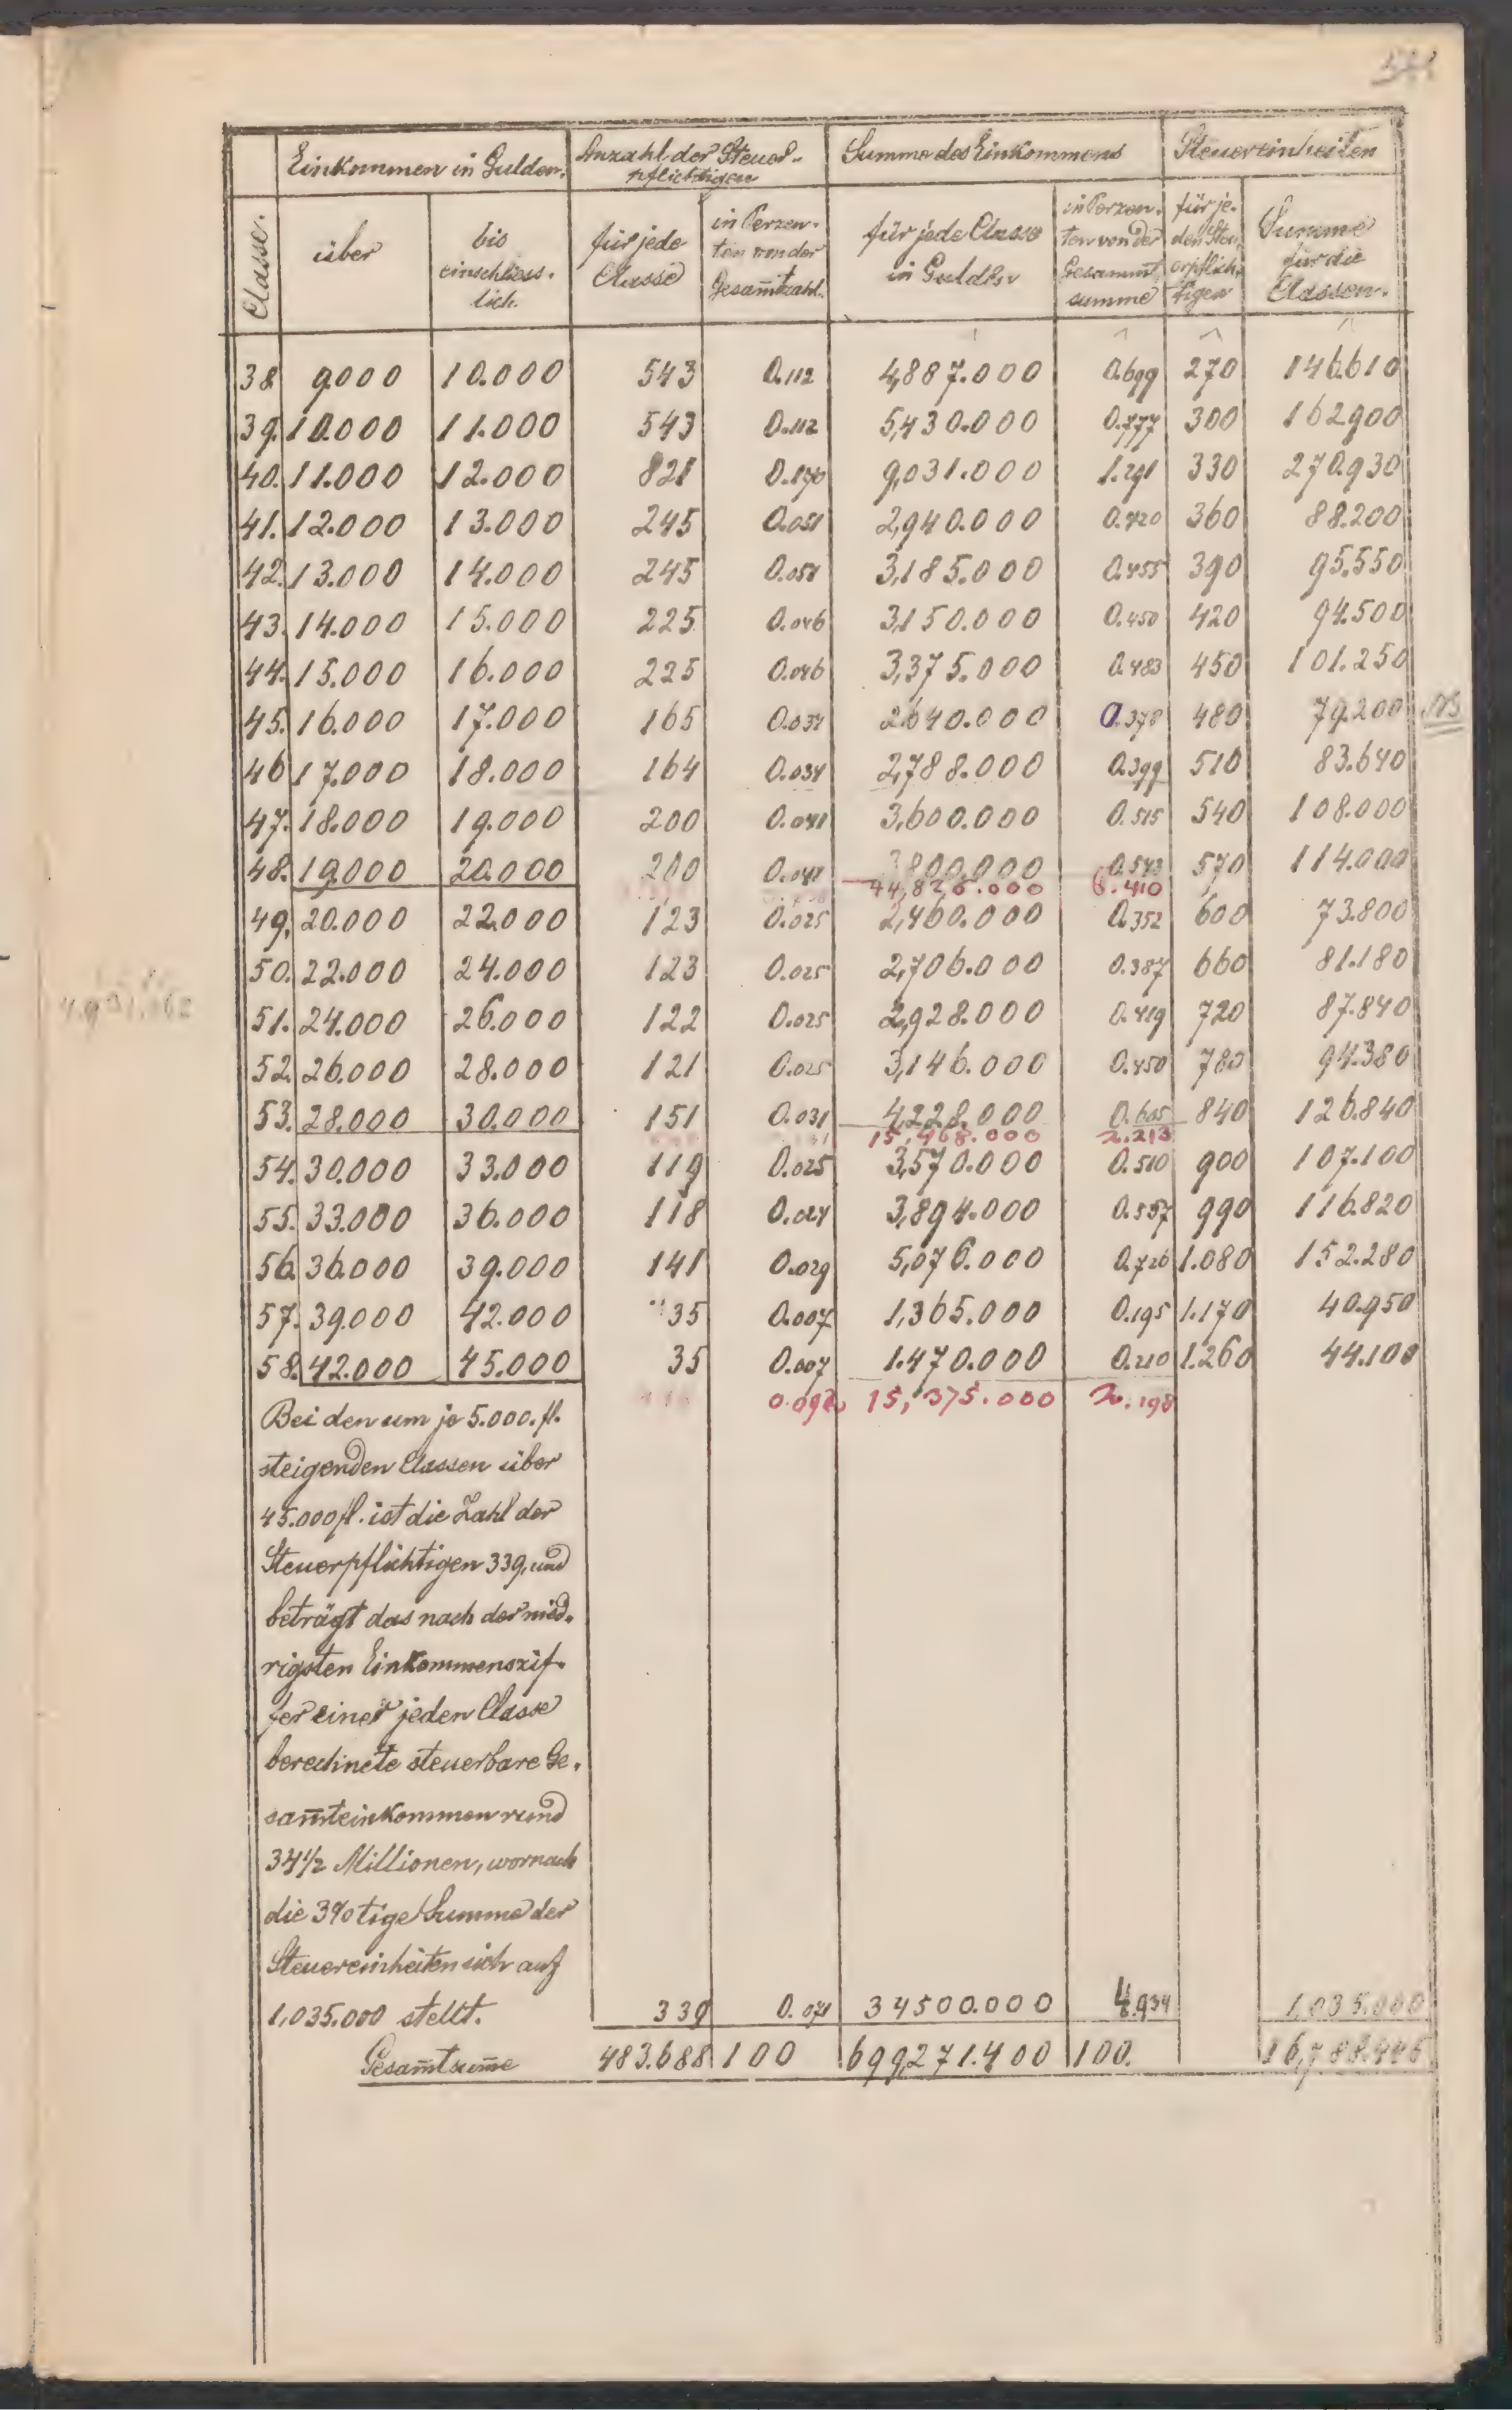 Classe.
Einkommen in Gulden.
Anzahl der Steuer-
pflichtigen
Summe des Einkommens
Steuereinheiten
über
bis
einschliess-
lich.
für jede
Classe
in Perzen-
ten von der
Gesam̅tzahl.
für jede Classe
in Gulden
in Perzen-
ten von der
Gesammt
summe
für je-
den Steu-
erpflich-
tigen
Summe
für die
Classen.
38 9000 10.000 543 0.112 4,887.000 0.699 270 146.610
39. 10.000 11.000 543 0.112 5,430.000 0.777 300 162900
40. 11.000 12.000 821 0.170 9,031.000 1.291 330 270.930
41. 12.000 13.000 245 0.051 2,940.000 0.420 360 88.200
42. 13.000 14.000 245 0.051 3,185.000 0.455 390 95.550
43. 14.000 15.000 225 0.046 3,150.000 0.450 420 94.500
44. 15.000 16.000 225 0.046 3,375.000 0.483 450 101.250
45. 16.000 17.000 165 0.034 2640.000 0.378 480 79.200
46 17.000 18.000 164 0.034 2,788.000 0.399 510 83.640
47. 18.000 19.000 200 0.041 3,600.000 0.515 540 108.000
48. 19.000 20.000 200 0.041 3800,000 0.543 570 114.000
44,826.000 6.410
49. 20.000 22.000 123 0.025 2,460.000 0.352 600 73.800
50. 22.000 24.000 123 0.025 2,706.000 0.387 660 81.180
51. 24.000 26.000 122 0.025 2,928.000 0.419 720 87.840
52. 26.000 28.000 121 0.025 3,146.000 0.450 780 94.380
53. 28.000 30.000 151 0.031 4,228.000 0.605 840 126.840
15,468.000 2.213
54. 30.000 33.000 119 0.025 3,570.000 0.510 900 107.100
55. 33.000 36.000 118 0.024 3,894.000 0.557 990 116.820
56. 36.000 39.000 141 0.029 5,076.000 0.726 1.080 152.280
57. 39.000 42.000 35 0.007 1,365.000 0.195 1.170 40.950
58. 42.000 45.000 35 0.007 1.470.000 0.210 1.260 44.100
0.092 15,375.000 2.198
Bei den um je 5.000.fl.
steigenden Classen über
45.000 fl. ist die Zahl der
Steuerpflichtigen 339, und
beträgt das nach der nied-
rigsten Einkommenszif-
fer einer jeden Classe
berechnete steuerbare Ge-
sam̅teinkommen rund
34½ Millionen, wornach
die 3%tige Summe der
Steuereinheiten sich auf
1,035.000 stellt. 339 0.071 34500.000 4.934 1,035.000
Gesam̅tsum̅e 483.688 100 699,271.400 100. 16,788.446